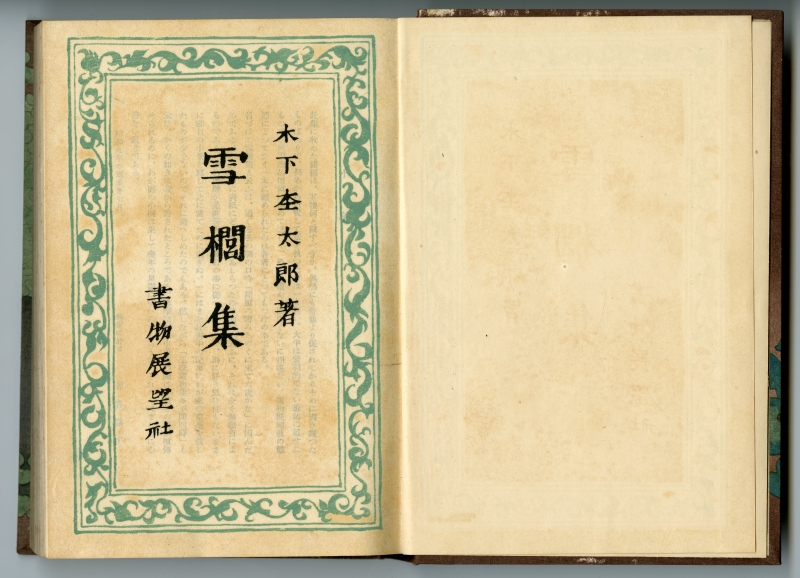 木下杢太郎著
雪櫚集
書物展望社